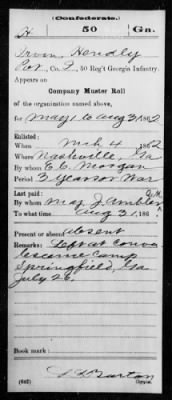 (Confederate.)
H 50 Ga.
Irvin Hendly
Pvt, Co. I, 50 Reg't Georgia Infantry.
Appears on
Company Muster Roll
of the organization named above,
for May 1 to Aug 31, 1862
Enlisted:
When Mch 4 1862
Where Nashville, Ga
By whom E. C. Morgan
Period 3 Years or War
Last paid:
By whom Maj J. Ambler
To what time Aug 31, 186
Present or absent absent
Remarks: Left at Conva
lescane Camp
Springfield, Ga
July 26.
Book mark:
(642) Copyist.